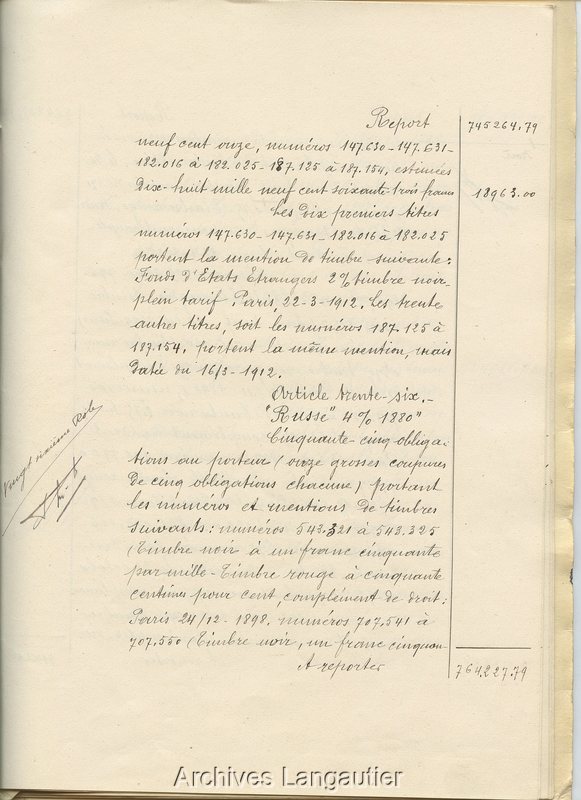 Report 745264.79
neuf cent onze, numéros 147.630-147.631-
182.016 à 182.025-187.125 à 187.154, estimées
Dix-huit mille neuf cent soixante-trois francs 18963.00
Les dix premiers titres
numéros 147.630-147.631-182.016 à 182.025
portent la mention de timbre suivante:
Fonds d'Etats Etrangers 2% timbre noir-
plein tarif. Paris, 22-3-1912. Les trente
autres titres, soit les numéros 187.125 à
187.154, portent la même mention, mais
datée du 16/3-1912.
Article trente-six.-
"Russe" 4% 1880"
Cinquante-cinq obliga-
tions au porteur (onze grosses coupures
de cinq obligations chacune) portant
les numéros et mentions de timbres
suivants: numéros 543.321 à 543.325
(Timbre noir à un franc cinquante
par mille-Timbre rouge à cinquante
centimes pour cent, complément de droit:
Paris 24/12-1898. numéros 707.541 à
707.550 (Timbre noir, un franc cinquan
A reporter 764227.79
Vingt sixième Rôle
Archives Langautier